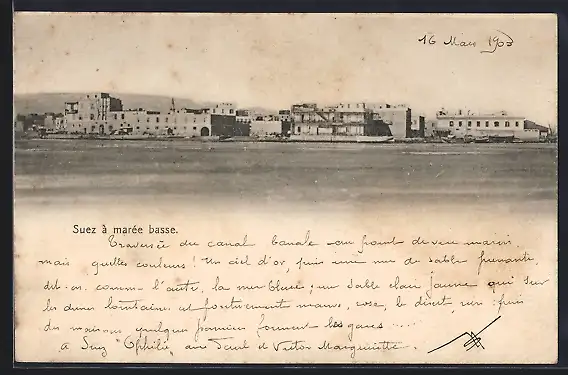 16 Mars 1903
Suez à marée basse.
Traversée du canal banale au point de vue marin
mais quelles couleurs ! Un ciel d'or, puis une mer de sable
comme l'autre, la mer bleue ; un sable clair jaune qui sur
les dunes lointaines est mauve, rose, le désert, rien ; puis
des maisons quelques palmiers forment les gares ....
à Suez "Ophélie, Victor Marguerite.